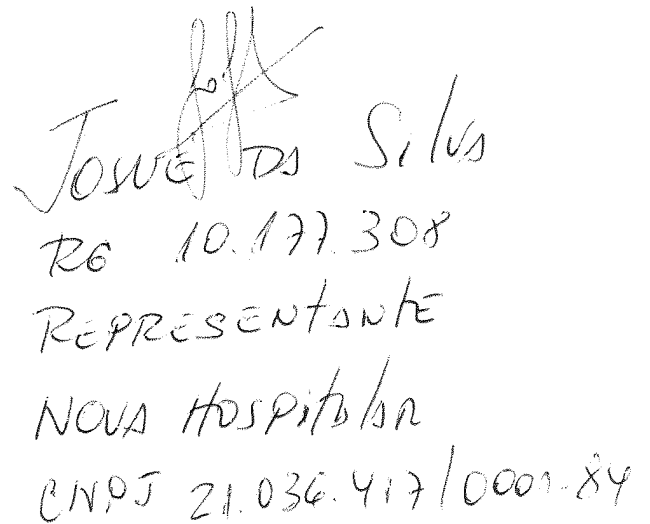 JOSUE DA SILVA
RG 10.177.308
REPRESENTANTE
NOVA HOSPITALAR
CNPJ 21.036.417/0001-84